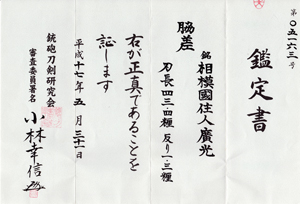 第〇五一六三号
鑑定書
脇差
銘 相模國住人廣光
刃長四三・四糎 反り一・三糎
右が正真であることを
証します
平成十七年五月三十一日
銃砲刀剣研究会
審査委員署名
小林幸信